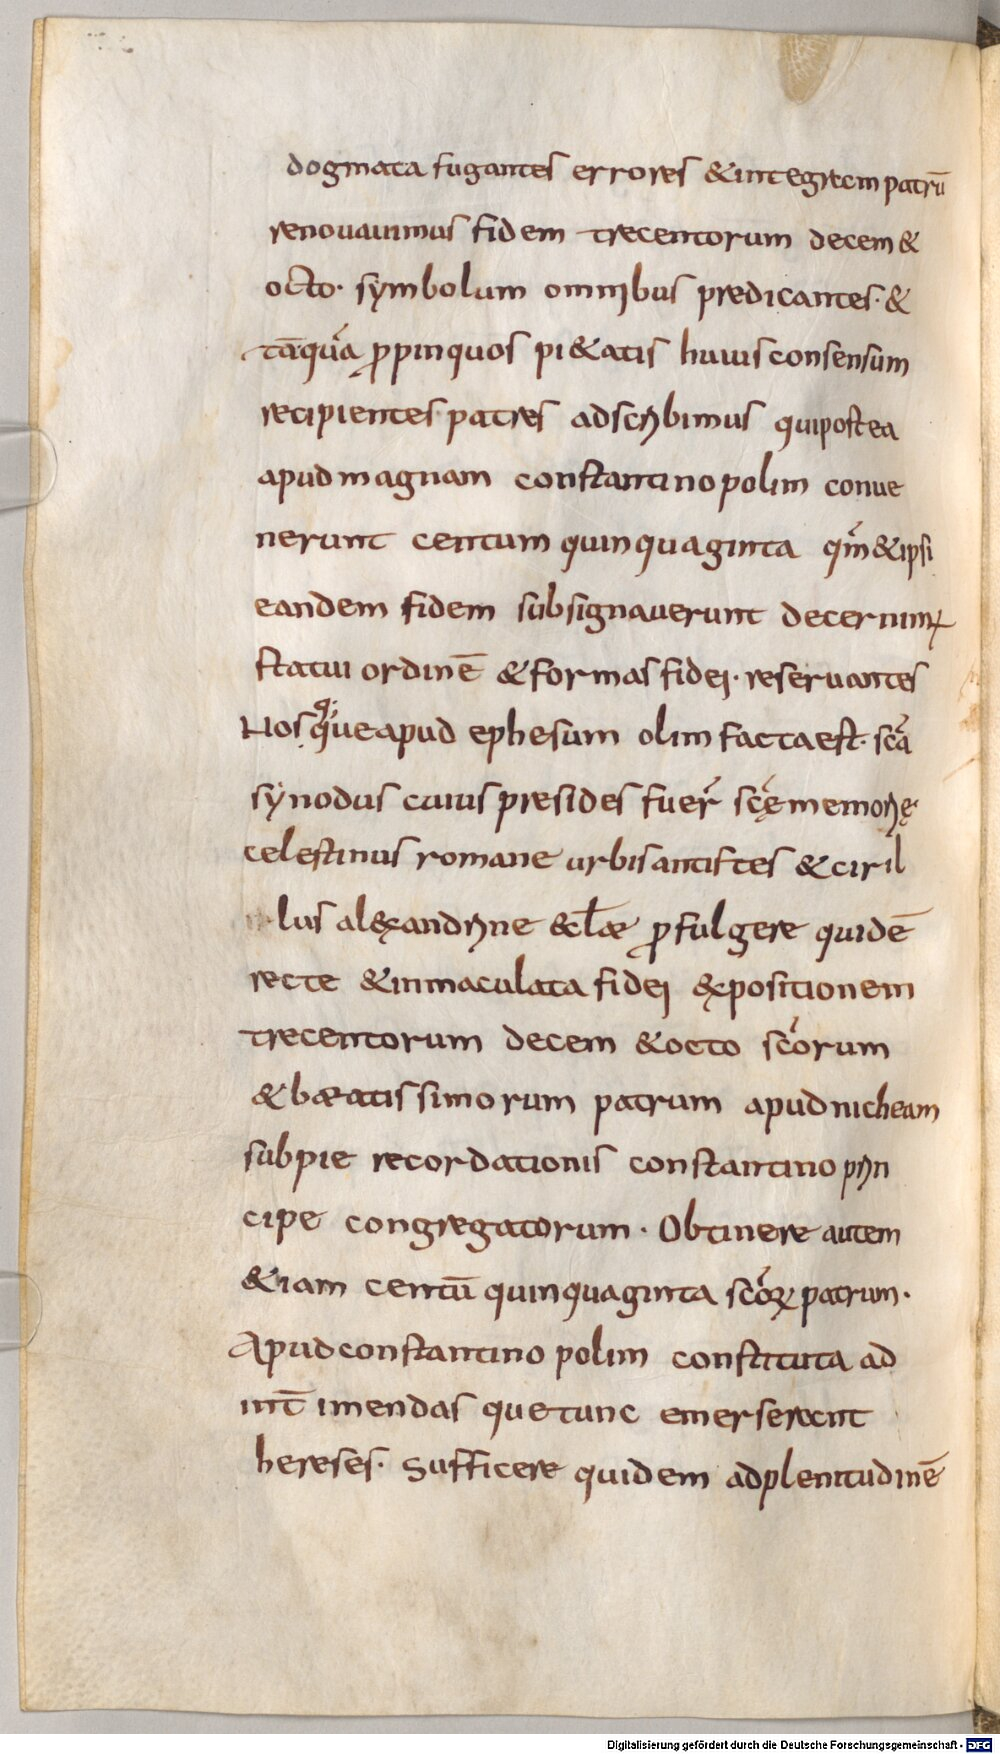 dogmata fugantes errores &integrem patrū
renouauimus fidem trecentorum decem &
octo· symbolum omnibus predicantes· &
tāquā ꝓpinquos pi&atis huius consensum
recipientes patres adscribimus qui postea
apud magnam constantinopolim conue
nerunt centum quinquaginta qm̄ &ipsi
eandem fidem subsignauerunt decernim̅
statui ordinē & formas fidei· reseruantes
Hos q̄ue apud ephesum olim facta est· sc̄a
synodus cuius presides fuer̄ sc̄ę memorię
celestinus romane urbis antistes & ciril
lus alexandrine &cl̄æ ꝓfulgere quidē
recte & inmaculata fidei expositionem
trecentorum decem & octo sc̄orum
& bæatissimorum patrum apud nicheam
sub pie recordationis constantino prin
cipe congregatorum· Obtinere autem
&iam centū quinquaginta sc̄oꝝ patrum·
Apud constantinopolim constituta ad
int̄ imendas que tunc emerserunt
hereses· Sufficere quidem ad plenitudinē
Digitalisierung gefördert durch die Deutsche Forschungsgemeinschaft - DFG